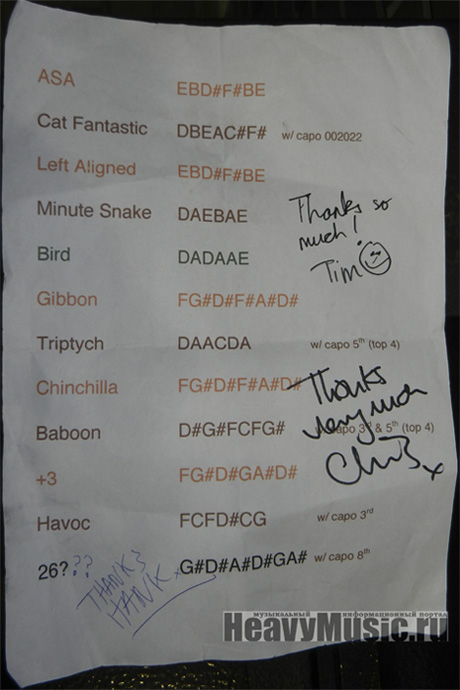 ASA EBD#F#BE
Cat Fantastic DBEAC#F# w/ capo 002022
Left Aligned EBD#F#BE
Minute Snake DAEBAE
Thanks so
much!
Tim
Bird DADAAE
Gibbon FG#D#F#A#D#
Triptych DAACDA w/ capo 5th (top 4)
Chinchilla FG#D#F#A#D#
Thanks
very much
Baboon D#G#FCFG# w/ capo 3rd & 5th (top 4)
Chris x
+3 FG#D#GA#D#
Havoc FCFD#CG w/ capo 3rd
26??? G#D#A#D#GA# w/ capo 8th
THANKS
HANK x
музыкальный информационный портал
HeavyMusic.ru